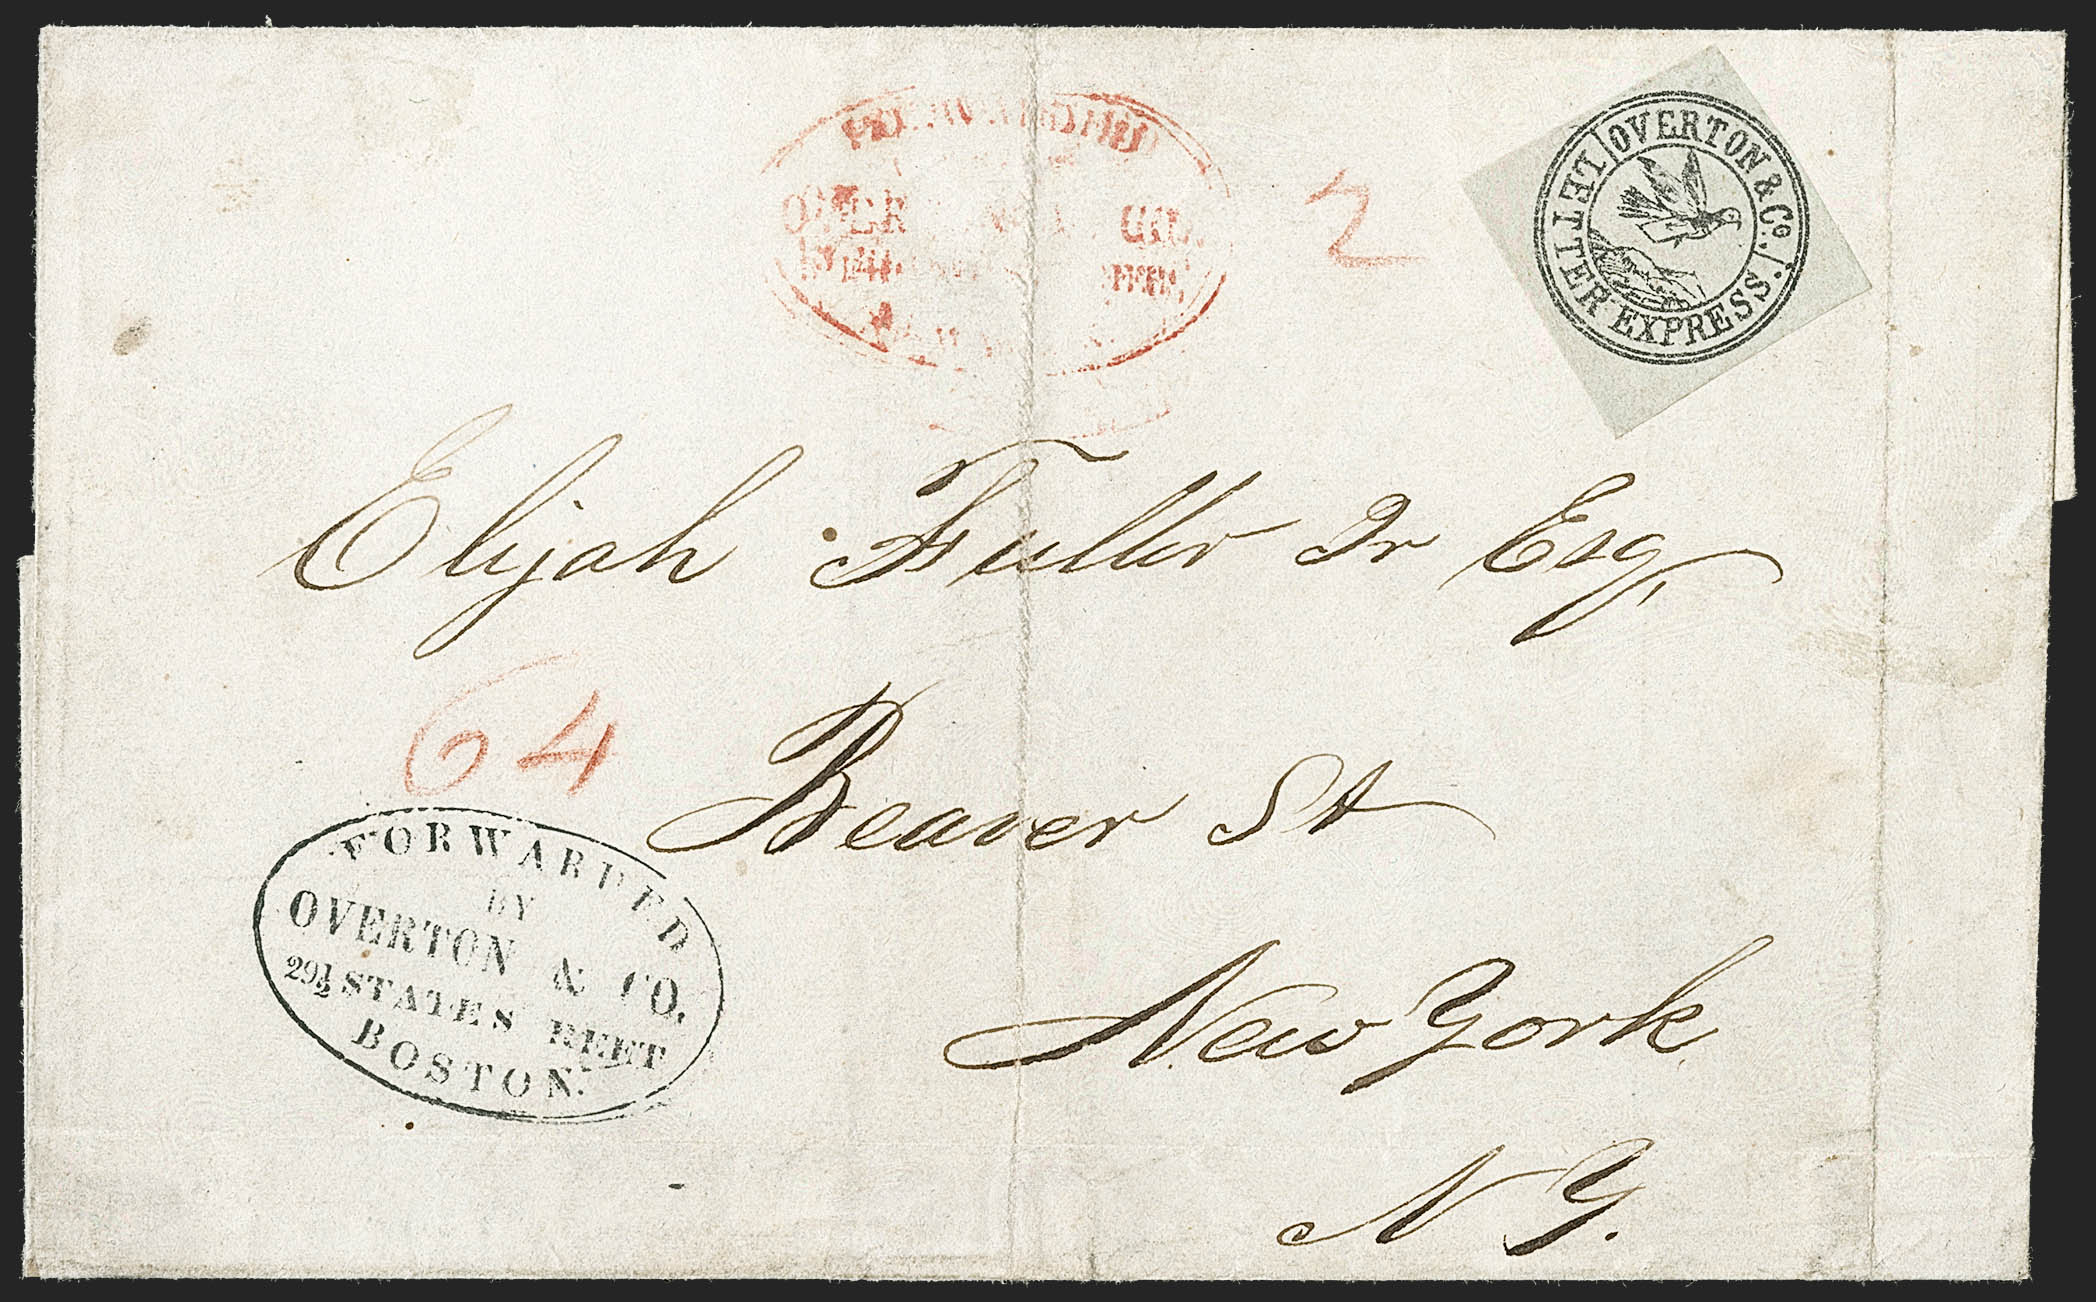 OVERTON & Co. LETTER EXPRESS.
2
Elijah Fuller Jr Esq,
64
Beaver St
New York
N Y.
FORWARDED
BY
OVERTON & CO.
29½ STATE STREET
BOSTON.